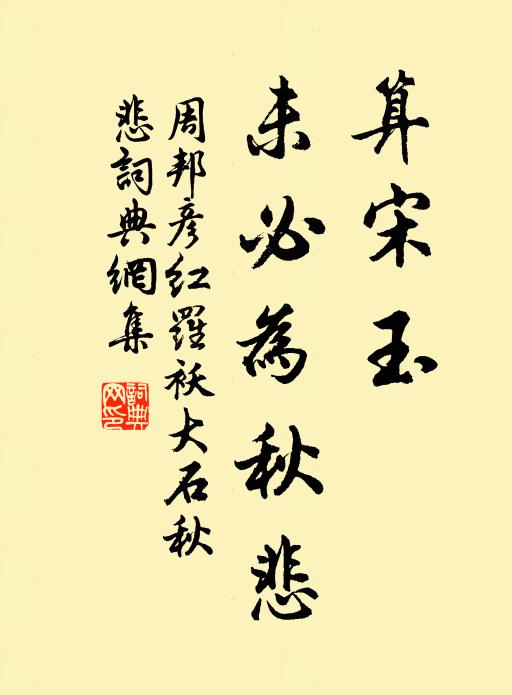 算宋玉
未必為秋悲
周邦彥紅羅袄大石秋
悲詞典網集
詞典
网印